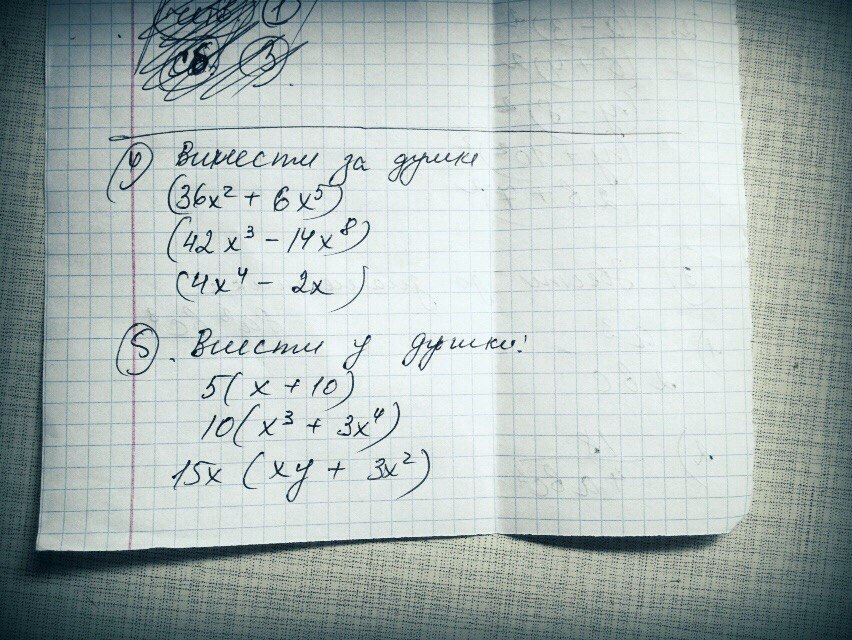 ①
сб. ③
④ Винести за дужки
(36x² + 6x⁵)
(42x³ - 14x⁸)
(4x⁴ - 2x)
⑤. Внести у дужки:
5(x + 10)
10(x³ + 3x⁴)
15x (xy + 3x²)